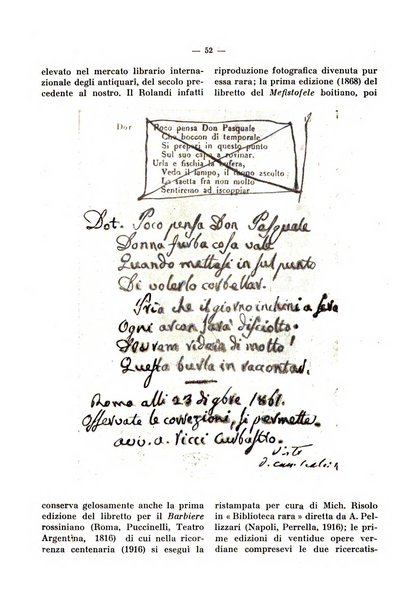 — 52 —
elevato nel mercato librario interna-
zionale degli antiquari, del secolo pre-
cedente al nostro. Il Rolandi infatti
riproduzione fotografica divenuta pur
essa rara; la prima edizione (1868) del
libretto del Mefistofele boitiano, poi
Dor Poco pensa Don Pasquale
Che boccon di temporale
Si prepari in questo punto
Sul suo capo a rovinar.
Urla e fischia la bufera,
Vedo il lampo, il tuono ascolto
La saetta fra non molto
Sentiremo ad iscoppiar
Dot. Poco pensa Don Pasquale
Donna furba cosa vale
Quando mettesi in sul punto
Di volerlo corbellar.
Pria che il giorno inchini a sera
Ogni arcan sarà disciolto.
Se uram rideria di molto!
Questa burla in raccontar.
Roma alli 23 digbre 1861.
Osservate le correzioni, si permette
avv. a. Ricci Curbastro
Visto
conserva gelosamente anche la prima
edizione del libretto per il Barbiere
rossiniano (Roma, Puccinelli, Teatro
Argentina, 1816) di cui nella ricor-
renza centenaria (1916) si eseguì la
ristampata per cura di Mich. Risolo
in « Biblioteca rara » diretta da A. Pel-
lizzari (Napoli, Perrella, 1916); le pri-
me edizioni di ventidue opere ver-
diane compresevi le due ricercatis-